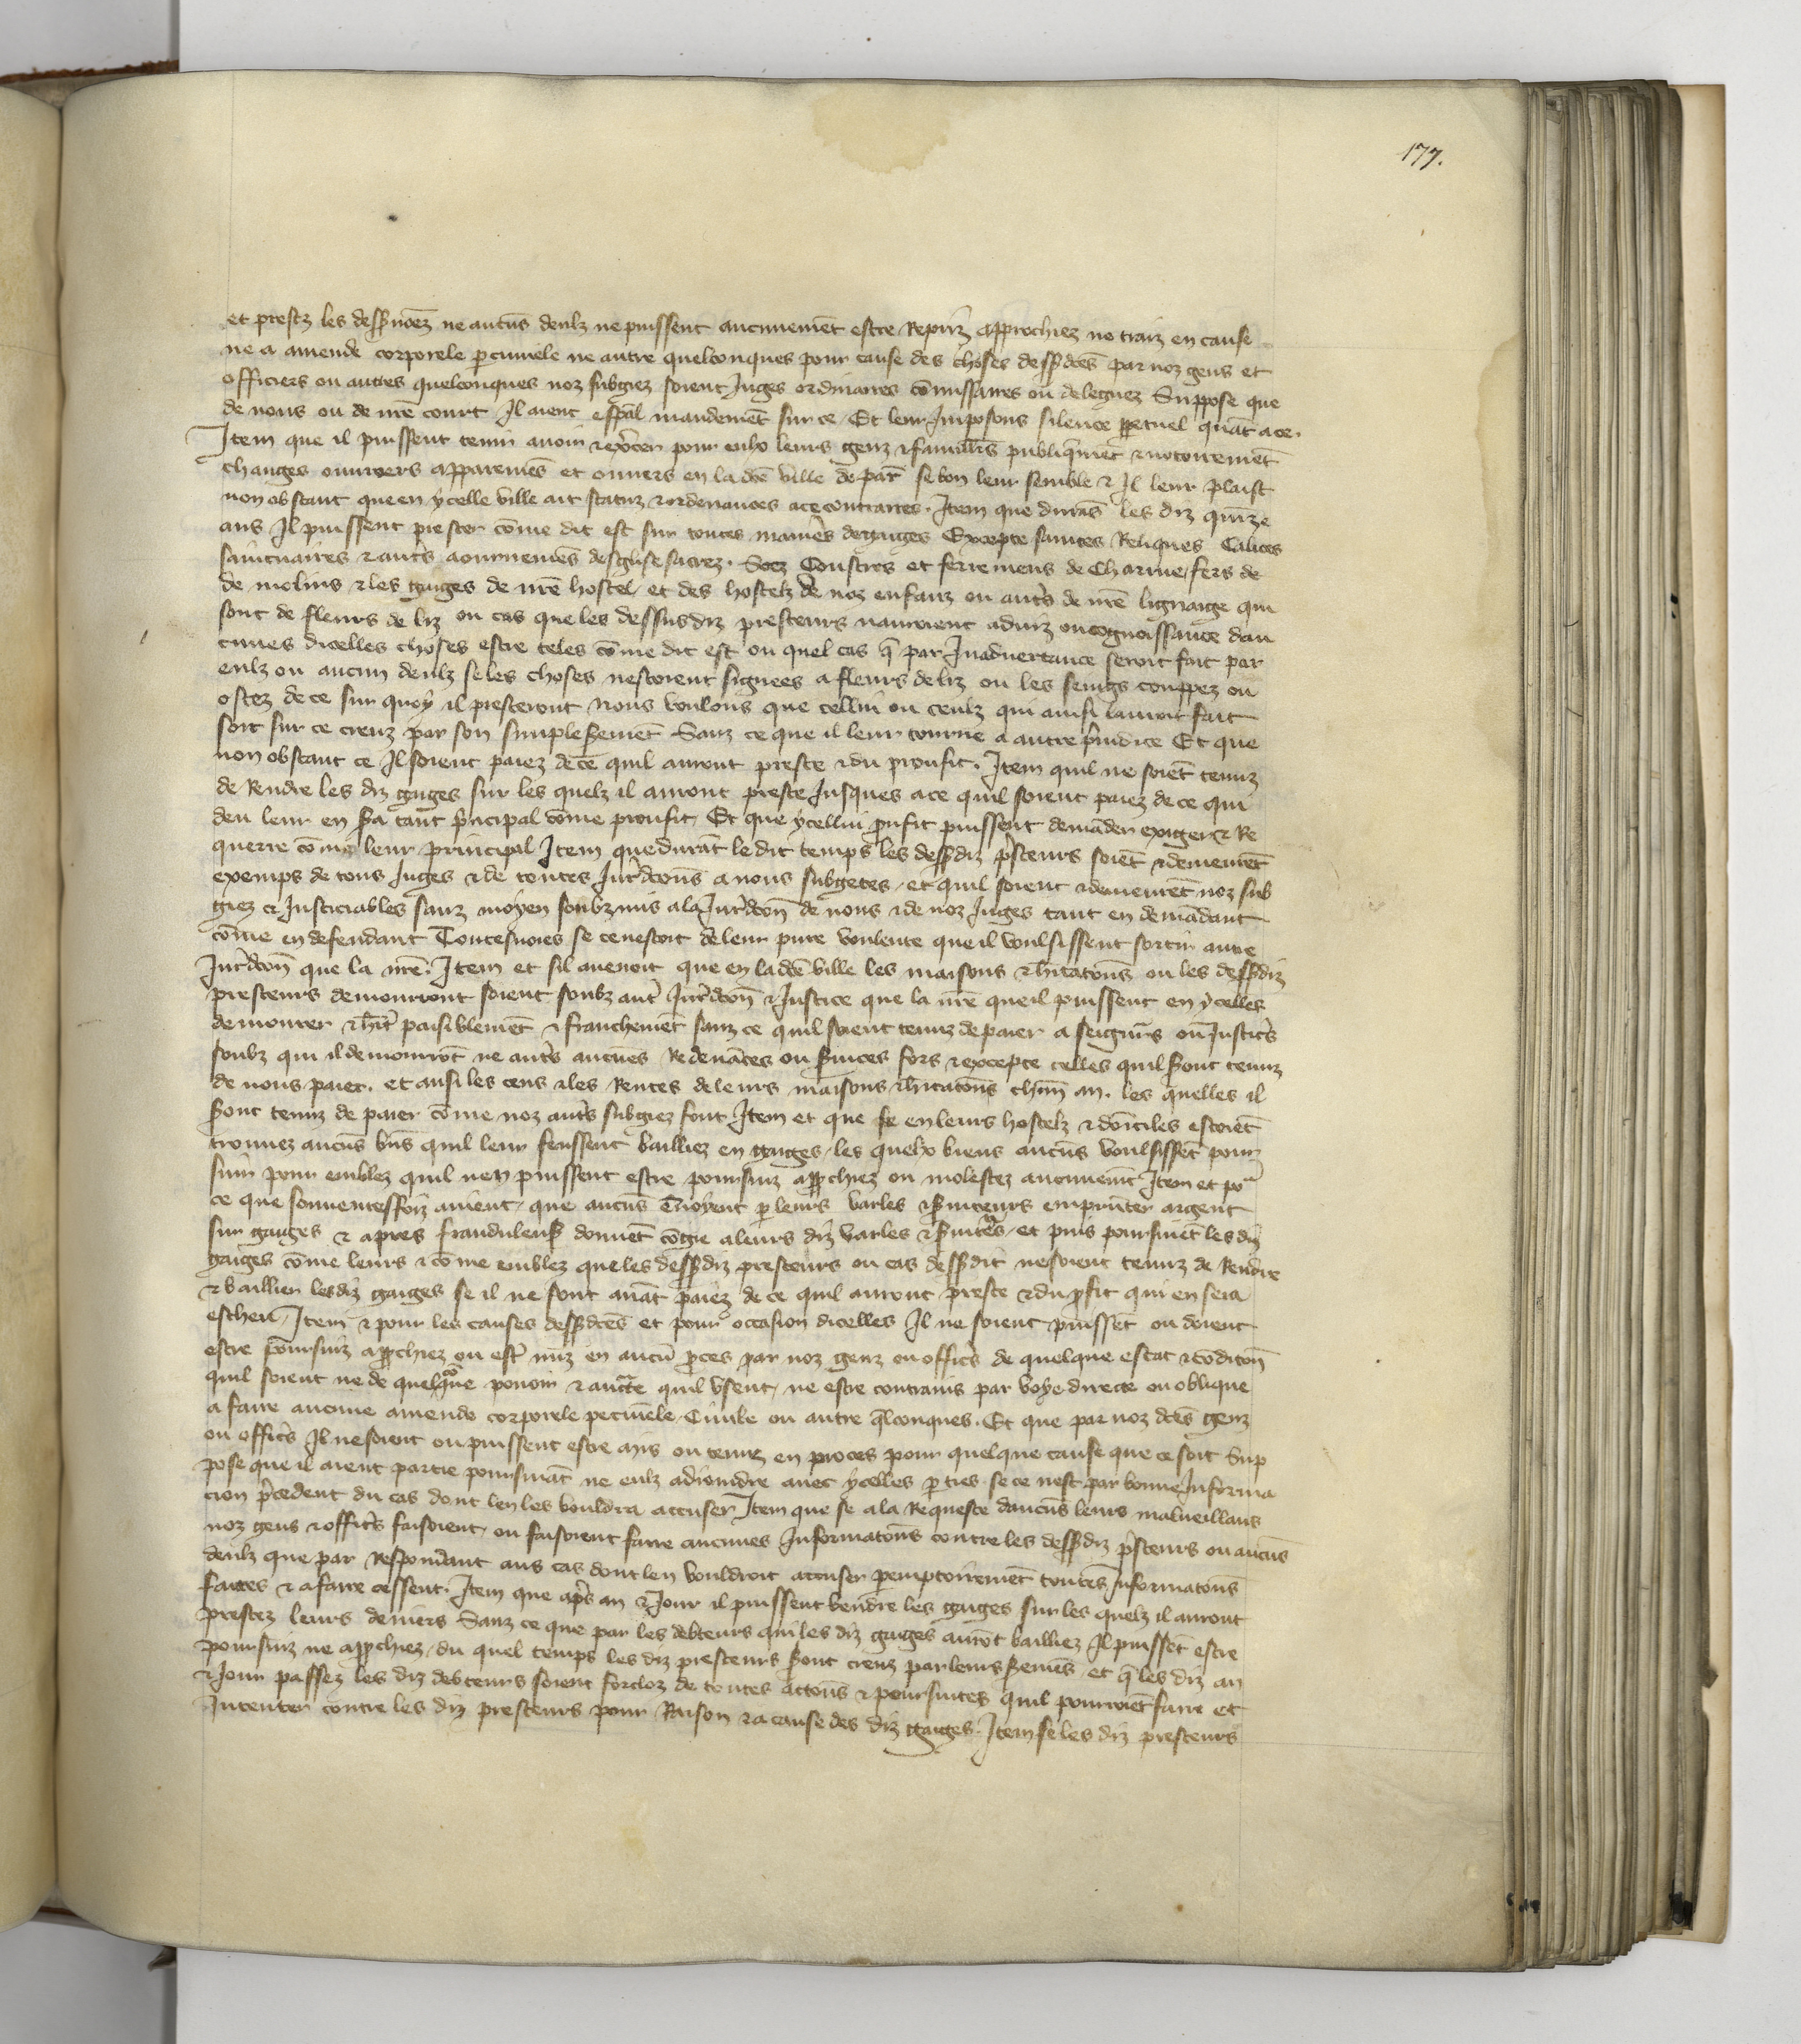 177.
et prestz les dessʼnōez ne aucūs deulz ne puissent aucunemēt estre Repriz approchiez ne traiz en cause
ne a amende corporele peccuniele ne autre quelconques pour cause des choses dessʼdces par noz gens et
officiers ou autres quelconques noz subgiez soient Juges ordinaires cōmissaires ou deleguez Suppose que
de nous ou de nrē court Il aient esp̄al mandemēt sur ce. Et leur Imposons silence ppetuel quāt a ce.
Item que il puissent tenir auoir & exʼcer pour eulx leurs genz & famill̄es publiqmēt & notoiremēt
changes ouuroers apparemēs et ouuers en la dcē ville de par̄ se bon leur semble & Il leur plaist
non obstant que en ycelle ville ait statuz & ordenances a ce contraires. Item que durās les diz quīze
ans Il puissent prester cōme dit est sur toutes manieʼs de gaiges Excepte saintes Reliques Calices
saintuaires & autʼs aournemēs desglise sacrez. Socz Coustres et ferremens de Charrue, fers de
de molins & les gaiges de nrē hostel, et des hostelz de noz enfanz ou autʼs de nrē lignaige qui
sont de fleurs de liz ou cas que les dessusdiz presteurs nauroient aduiz ou cognoissance dau
cunes dicelles choses estre teles cōme dit est ou quel cas q̄ par Inaduertance seroit fait par
eulz ou aucun deulz se les choses nestoient signees a fleurs de liz ou les seings couppez ou
ostez de ce sur quoy il presteront Nous voulons que cellui ou ceulz qui ainsi lauroit fait
soit sur ce creuz par son simple semēt Sanz ce que il leur tourne a autre pʼiudice Et que
non obstant ce Il soient paiez de ce quil auront preste & du proufit. Item quil ne soiēt tenuz
de Rendre les diz gaiges sur les quelz il auront preste Jusques a ce quil soient paiez de ce qui
deu leur en sʼa tant pʼncipal cōme proufit, Et que ycellui pʼufit puissent demāder exiger & Re
querre cōme leur principal Item que durāt le dit temps les dessʼdiz pʼsteurs soiēt & demeurēt
exemps de tous Juges & de toutes Jurʼdcōns a nous subgetes, et quil soient & demeurēt noz sub
giez & Justiciables sanz moyen soubzmis a la Jurʼdcōn de nous & de noz Juges tant en demādant
cōme en defendant Toutesuoies se ce nestoit de leur pure voulente que il voulsissent sortir autre
Jurʼdcōn que la nrē. Item et sil auenoit que en la dcē ville les maisons & hītatōns ou les dessʼdiz
presteurs demourront soient soubz autʼ Jurʼdcōn & Justice que la nrē que il puissent en ycelles
demourer & hītʼ paisiblemēt & franchemēt sanz ce quil soient tenuz de paier a seigneʼs ou Justicʼs
soubz qui il demourrōt ne autʼs aucunes Redeuāces ou seruices fors & excepte celles quil sont tenuz
de nous paier. et ausi les cens & les Rentes de leurs maisons & hītatōns chūn an. les quelles il
sont tenuz de paier cōme noz autʼs subgiez font Item et que se en leurs hostelz & domiciles estoiēt
trouuez aucūs bīens quil leur feussent bailliez en gaiges, les quelx biens aucūs voulsissēt pour
suir pour emblez quil nen puissent estre poursuiz app̄chiez ou molestez aucunemēt Item et poʳ
ce que souuentesfoiz auient, que aucūs enuoyent p leurs varles & seruiteurs emprūter argent
sur gaiges & apres fraudulens donnēt cōgie a leurs diz varles & seruitʼs, et puis poursuiuēt les diz
gaiges cōme leurs & cōme emblez que les dessʼdiz presteurs ou cas dessʼdit ne soient tenuz de Rendre
& baillier les diz gaiges se il ne sont auāt paiez de ce quil auront preste & du pʼfit qui en sera
escheu, Item & pour les causes dessʼdcēs et pour occasion dicelles Il ne soient puissēt ou doient
estre poursuiz app̄chiez ou estʼ miz en aucū pʼces par noz genz ou officʼs de quelque estat & cōditōn
quil soient ne de quelq̄ōne pouoir & auctʼte quil vsent, ne estre contrains par voye directe ou oblique
a faire aucune amende corporele pecunele, Ciuile ou autre q̄lconques. Et que par noz dcēs genz
ou officʼs Il ne soient ou puissent estre mis ou tenuz en proces pour quelque cause que ce soit Sup
pose que il aient partie poursuiāt ne eulz adioindre auec ycelles pties se ce nest par bonne Informa
cion pʼcedent du cas dont len les vouldra accuser Item que se a la Requeste daucūs leurs malueillans
noz gens & officʼs faisoient, ou faisoient faire aucunes Informatōns contre les dessʼdiz pʼsteurs ou aucūs
deulz que par Respondant aus cas dont len vouldroit accuser pemptoiremēt toutes Informatōns
faites & a faire cessent. Item que apʼs an & Jour il puissent vendre les gaiges sur les quelz il auront
prestez leurs deniers Sanz ce que par les debteurs qui les diz gaiges aurōt bailliez Il puissēt estre
poursuiz ne app̄chiez, du quel temps les diz presteurs sont creuz par leurs semēs, et q̄ les diz an
& Jour passez les diz debteurs soient forcloz de toutes actōns & poursuites quil pourroiēt faire et
Intenter contre les diz presteurs pour Raison & a cause des diz gaiges. Item se les diz presteurs